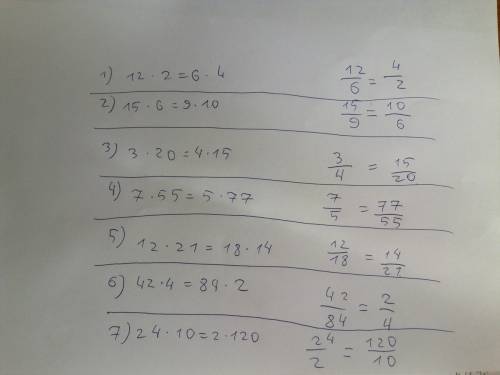 1) 12 · 2 = 6 · 4 12/6 = 4/2
2) 15 · 6 = 9 · 10 15/9 = 10/6
3) 3 · 20 = 4 · 15 3/4 = 15/20
4) 7 · 55 = 5 · 77 7/5 = 77/55
5) 12 · 21 = 18 · 14 12/18 = 14/21
6) 42 · 4 = 84 · 2 42/84 = 2/4
7) 24 · 10 = 2 · 120 24/2 = 120/10